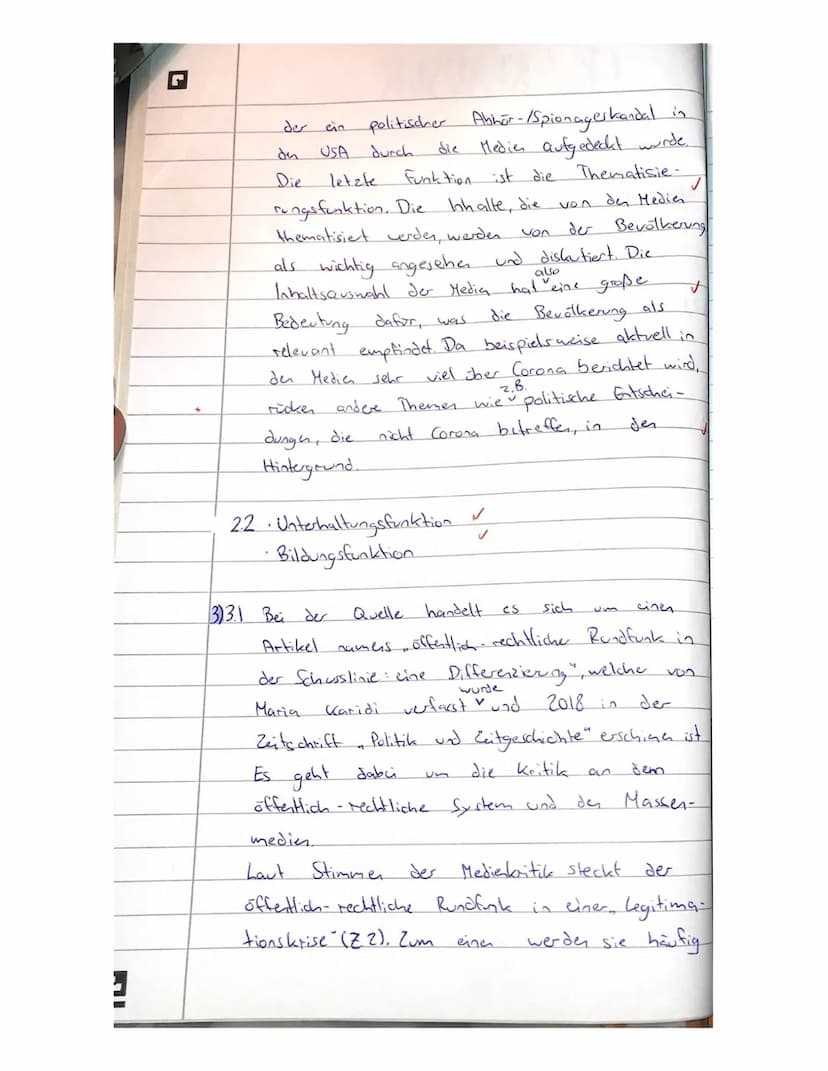 der ein politischer Abhör-/Spionageskandal in
den USA durch die Medien aufgedeckt wurde.
Die letzte Funktion ist die Thematisie-
rungsfunktion. Die Inhalte, die von den Medien
thematisiert werden, werden von der Bevölkerung
als wichtig angesehen und diskutiert. Die
Inhaltsauswahl der Medien hat also eine große
Bedeutung dafür, was die Bevölkerung als
relevant empfindet. Da beispielsweise aktuell in
den Medien sehr viel über Corona berichtet wird,
rücken andere Themen wie z.B. politische Entschei-
dungen, die nicht Corona betreffen, in den
Hintergrund.
2.2 · Unterhaltungsfunktion
· Bildungsfunktion
3) 3.1 Bei der Quelle handelt es sich um einen
Artikel namens „öffentlich-rechtliche Rundfunk in
der Schusslinie: eine Differenzierung", welche von
Maria Karidi verfasst wurde und 2018 in der
Zeitschrift „Politik und Zeitgeschichte" erschienen ist
Es geht dabei um die Kritik an dem
öffentlich-rechtliche System und den Massen-
medien.
Laut Stimmen der Medienkritik steckt der
öffentlich-rechtliche Rundfunk in einer „Legitima-
tionskrise" (Z 2). Zum einen werden sie häufig